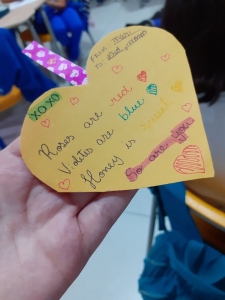 XOXO
FROM
TO
Roses are red
Violtes are blue
Honey is sweet
So are you